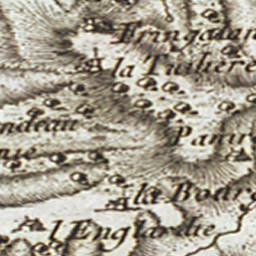 Fringalan
à la Tuilière
ndeau
Panur
nie
à la Bourg
l'Englardie